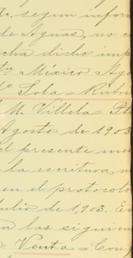 según infor
de Aguas, no
cha dicho imp
México Ago
Sola - Rúbri
M. Villela
Agosto de 1903
el presente
la escritura
en el protocolo
de 1903. E
en los siguien
Venta - Com